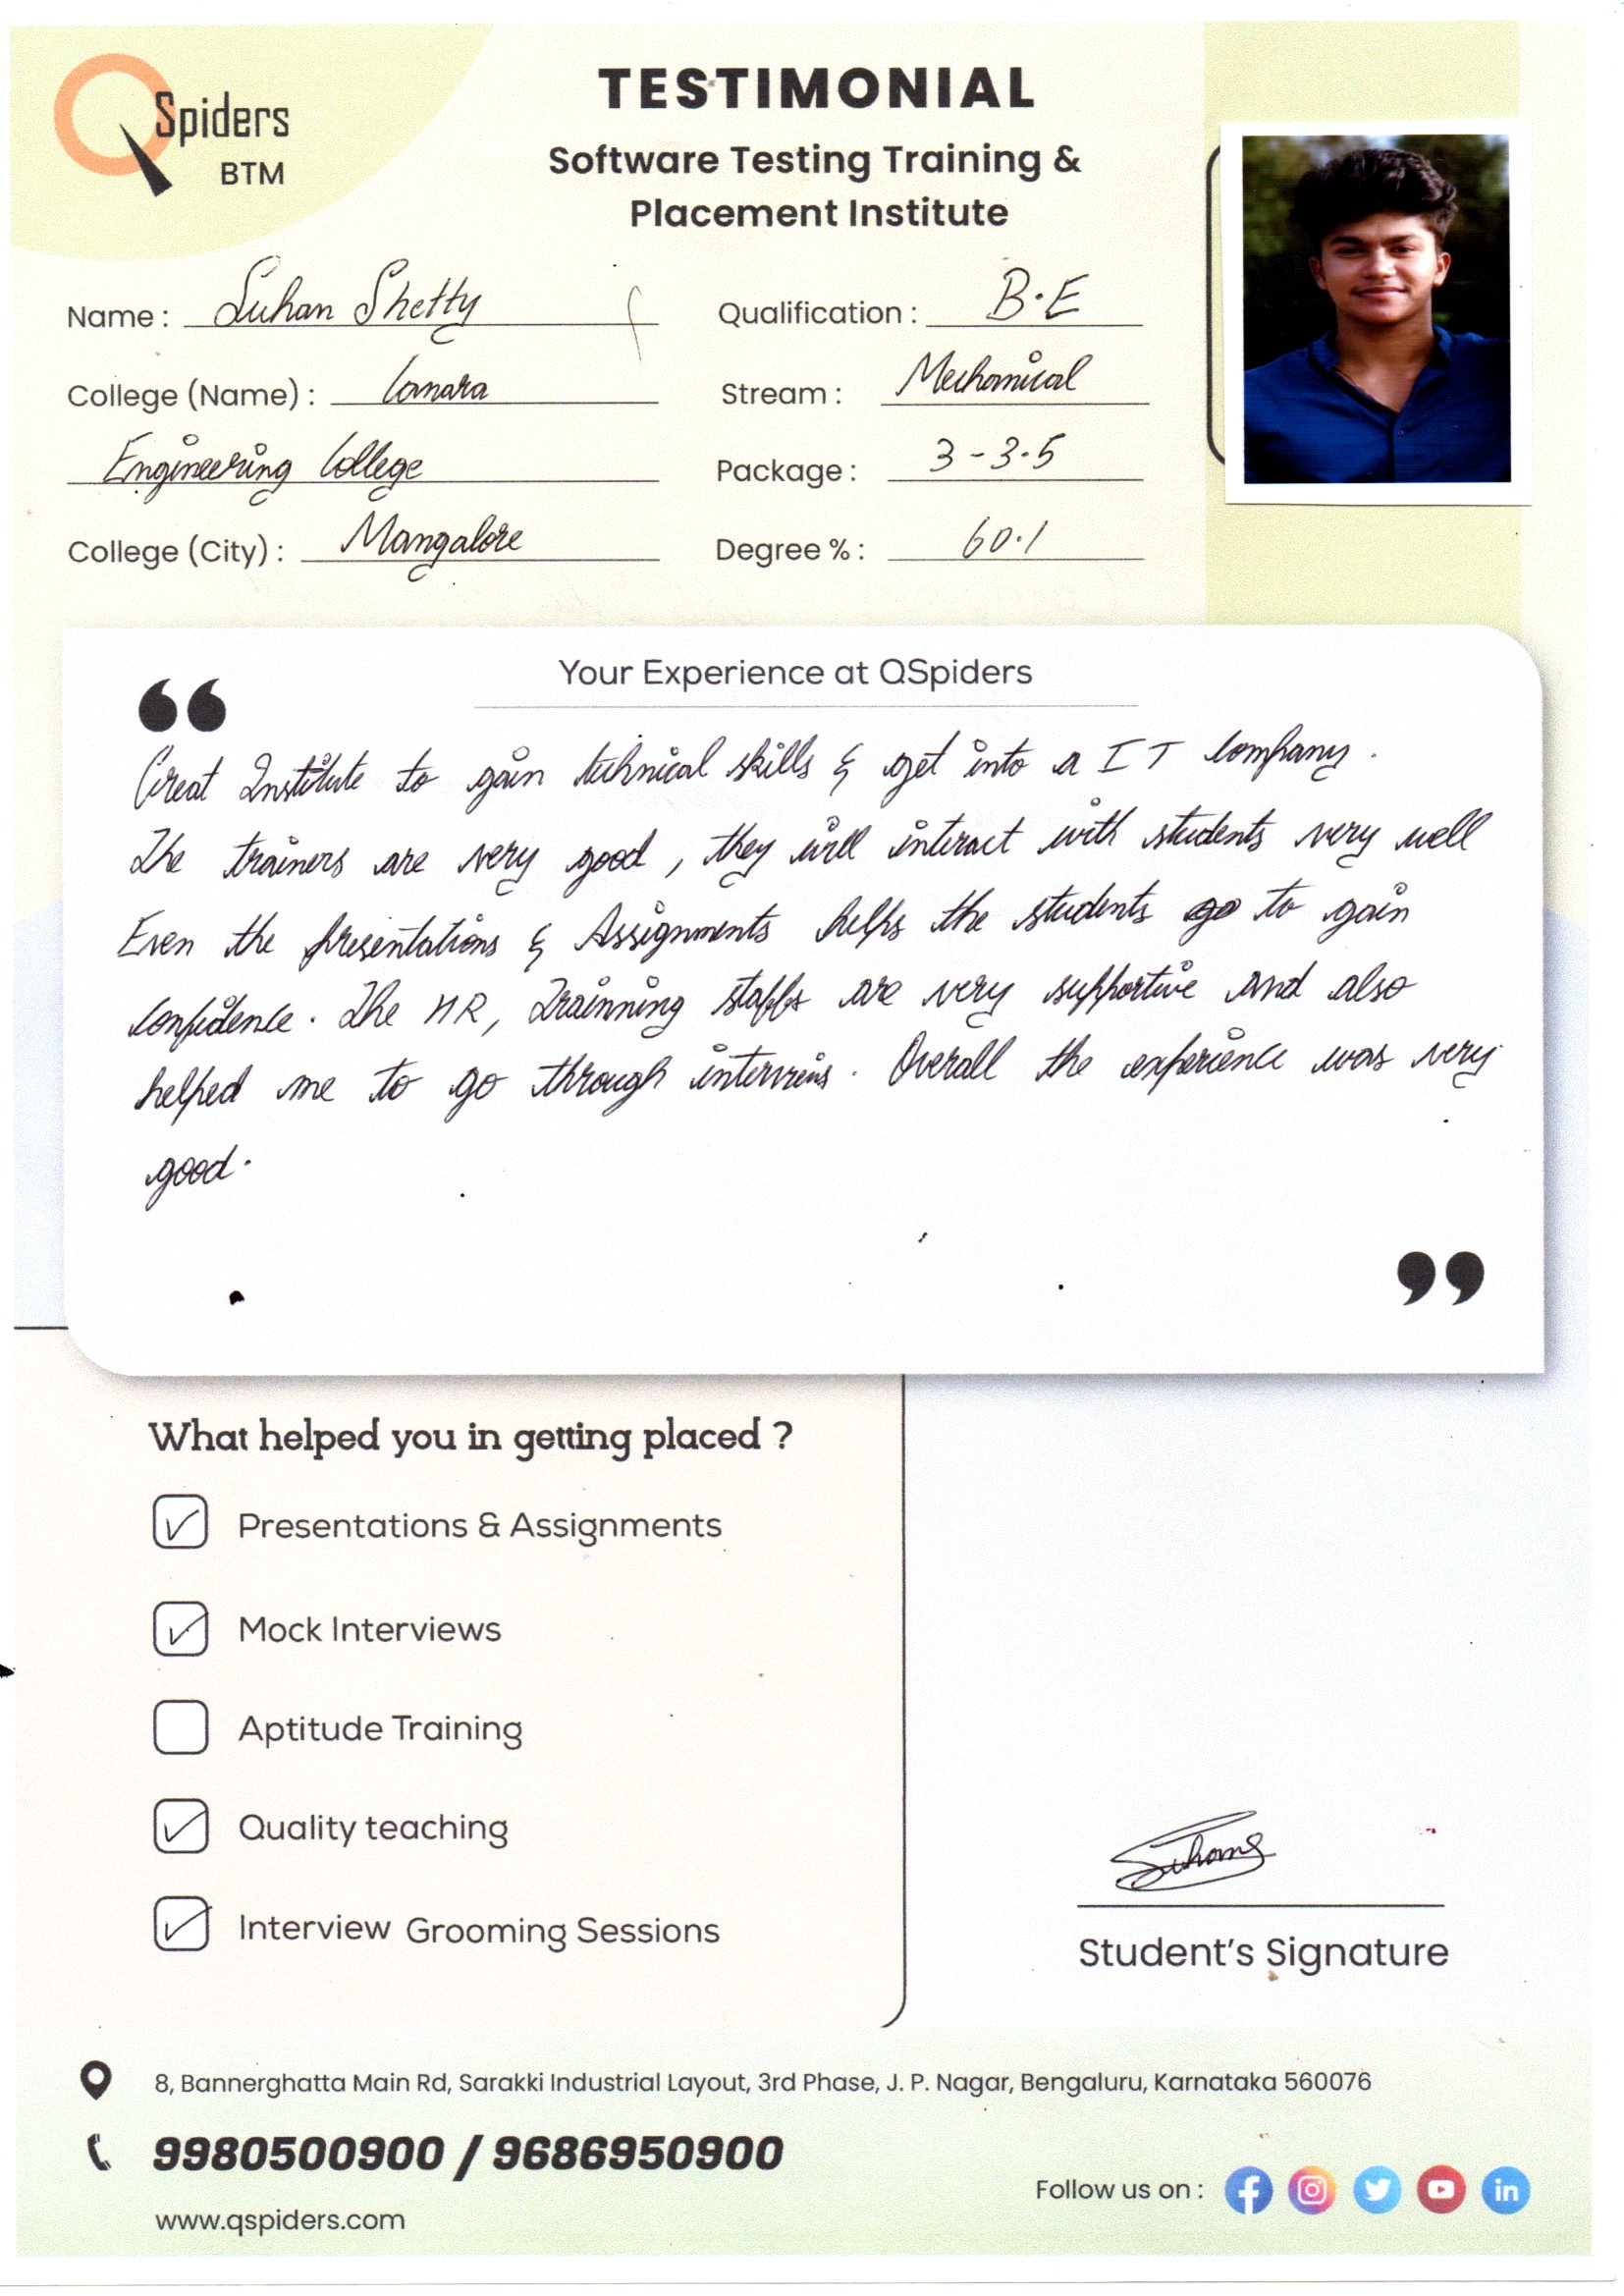 QSpiders
BTM
TESTIMONIAL
Software Testing Training &
Placement Institute
Name : Suhan Shetty
Qualification : B.E
College (Name) : Canara
Stream : Mechanical
Engineering College
Package : 3-3.5
College (City) : Mangalore
Degree % : 60.1
Your Experience at QSpiders
Great Institute to gain technical skills & get into a IT Company.
The trainers are very good, they will interact with students very well
Even the presentations & Assignments helps the students go to gain
confidence. The HR, Trainning staffs are very supportive and also
helped me to go through interviews. Overall the experience was very
good.
What helped you in getting placed ?
Presentations & Assignments
Mock Interviews
Aptitude Training
Quality teaching
Interview Grooming Sessions
Suhans
Student's Signature
8, Bannerghatta Main Rd, Sarakki Industrial Layout, 3rd Phase, J. P. Nagar, Bengaluru, Karnataka 560076
9980500900 / 9686950900
www.qspiders.com
Follow us on :